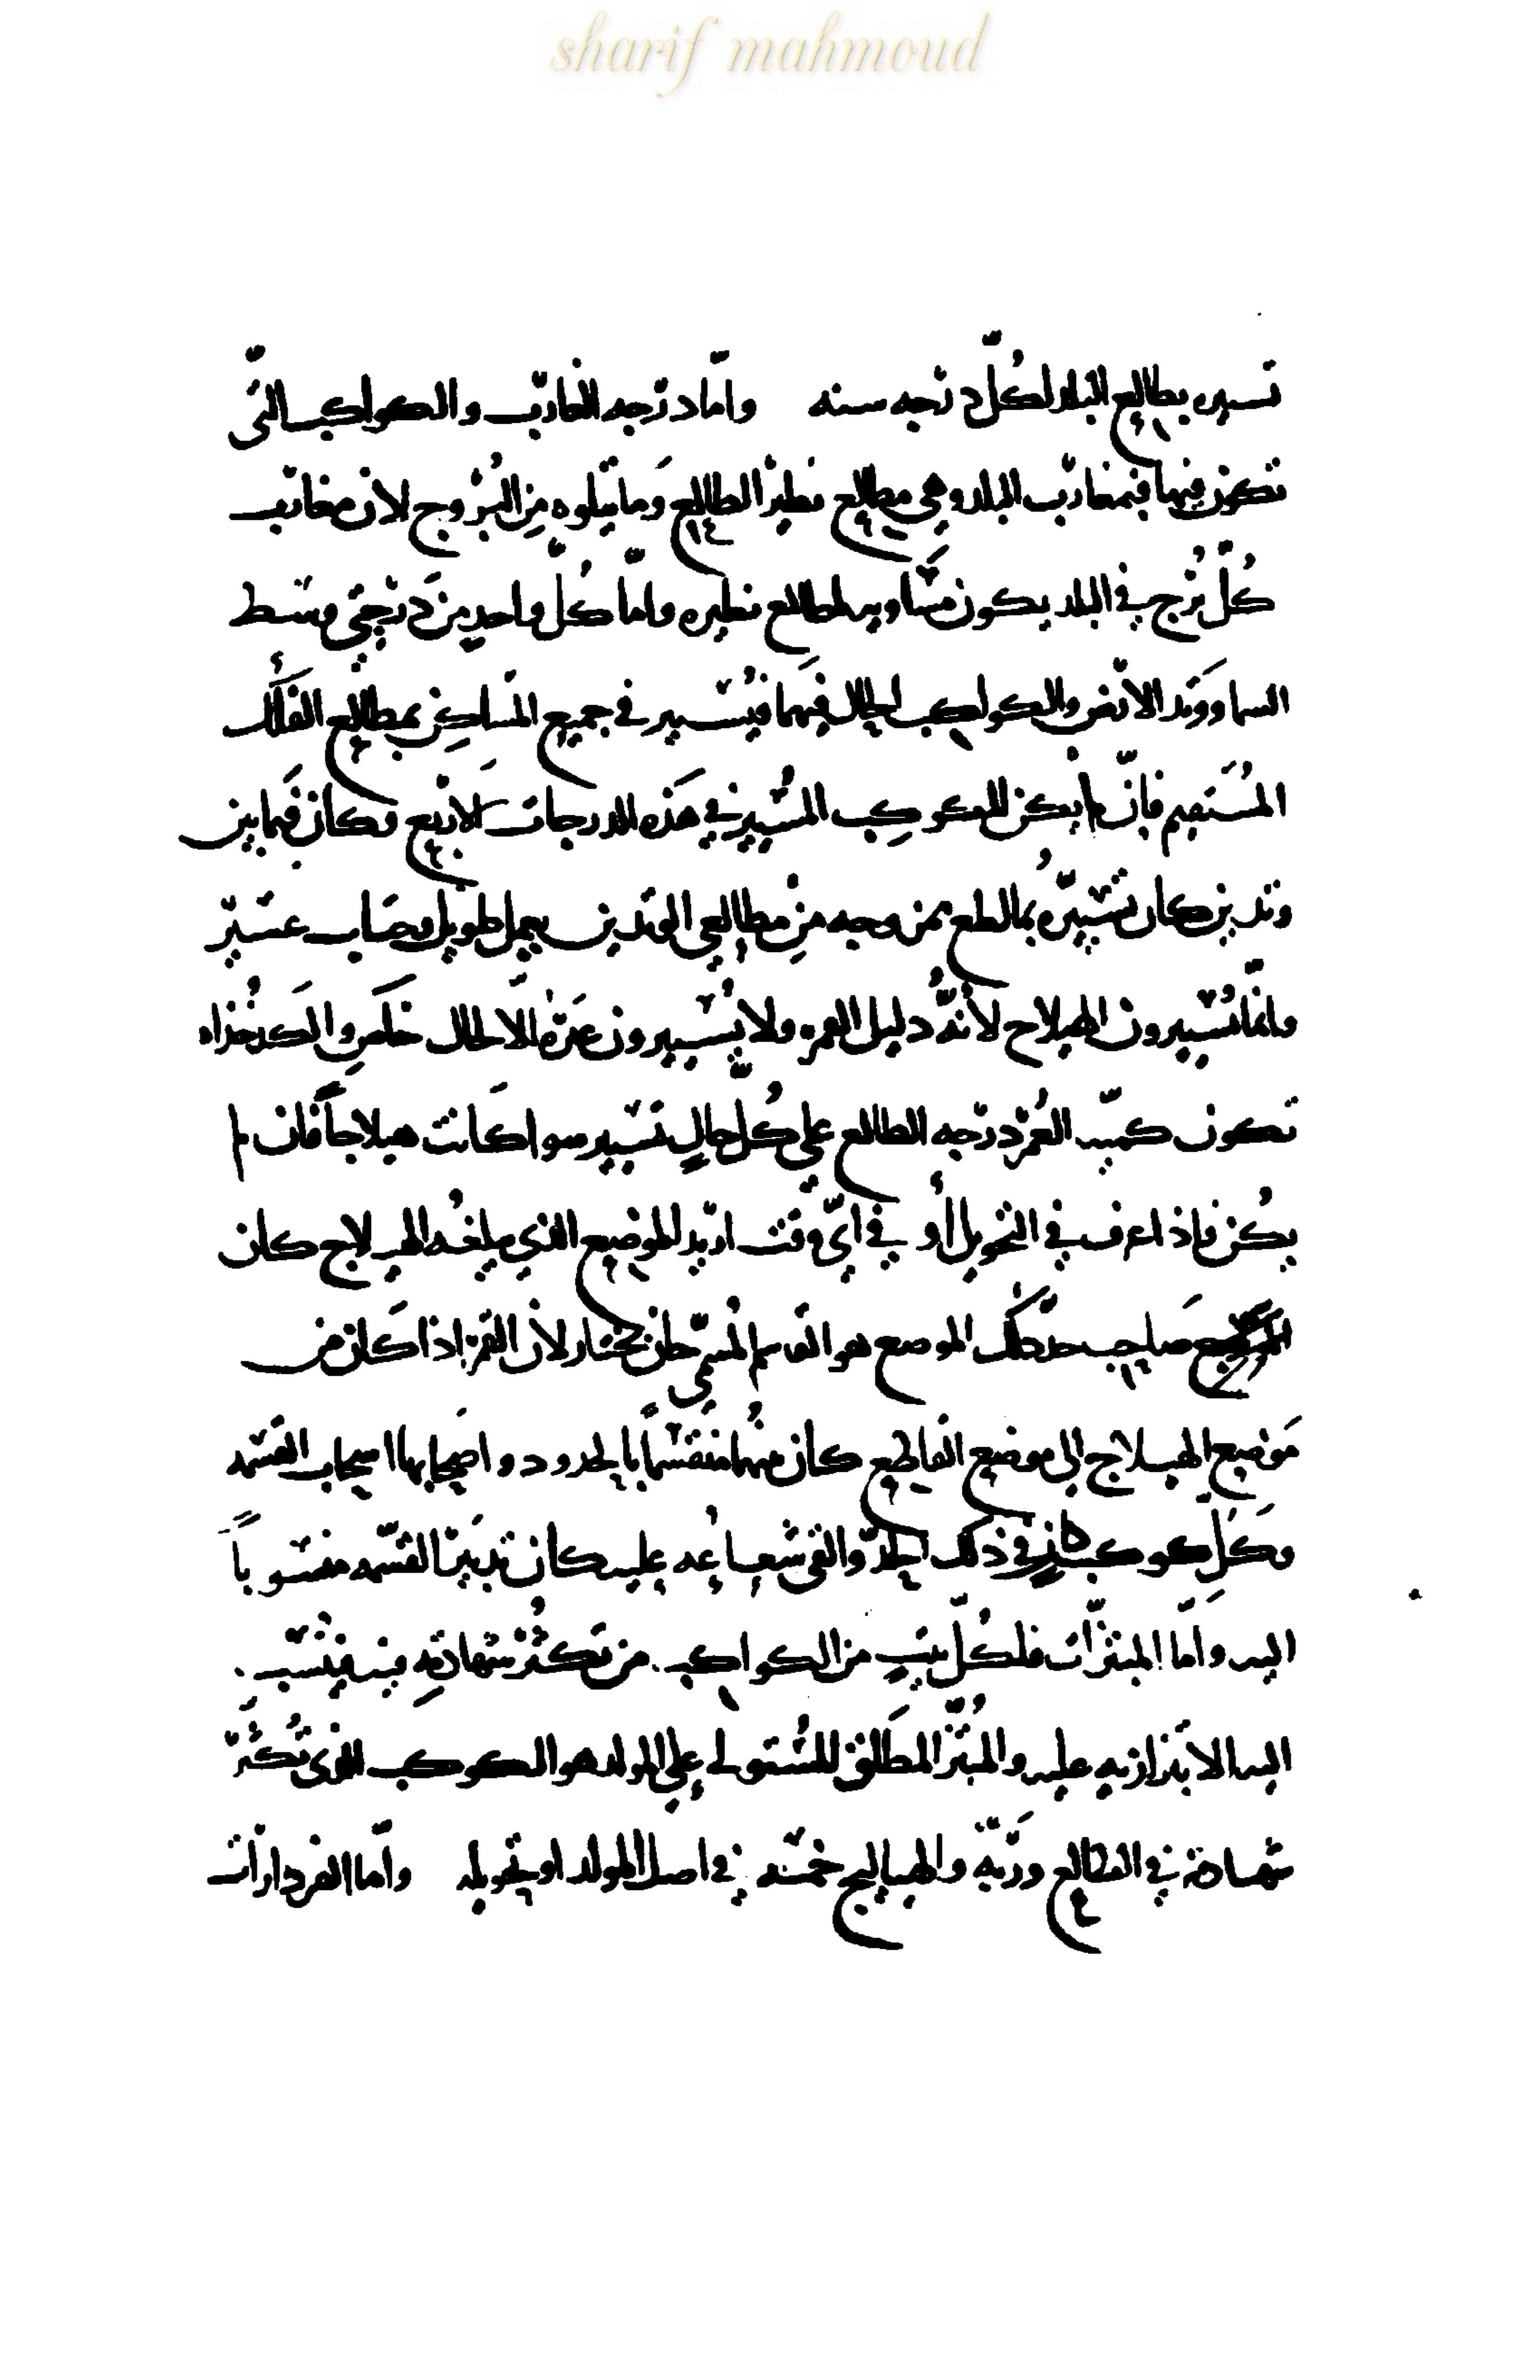 sharif mahmoud
تسيره بمطالع البلد لكلّ درجه سنه وامّا درجه الغارب والكواكب التي
تكون فيها فبمغارب البلد وهي مطالع نظير الطالع وما يتلوه من البروج لان مغارب
كلّ برج في البلد يكون مساويه لمطالع نظيره وامّا كلّ واحدٍ من درجتي وسط
السما ووتد الارض والكواكب الحال فيهما فيُسير في جميع المساكن بمطالع الفلك
المستقيم فان لم يكن للكوكب المسير في هذه الدرجات الاربع وكان فيما بين
وتدين كان تسييره بمطالع ممزوجه من مطالعي الوتدين بعمل طويل وحساب عسير
وانما يُسيرون الهيلاج لأنّه دليل العمر ولا يُسيرون غيره الا لحال خاص والكدخداه
تكون كميّه العمر ودرجه الطالع علي كلّ حالٍ تسير سوا كانت هيلاجاً فان لم
يكن فاذا عرف في التحويل أو في ايّ وقت اريد الموضع الذي بلغه الهيلاج كان
صاحب حدّ ذلك الموضع هو القاسم المسمي جان بختار لأن القمر اذا كان من
موضع الهيلاج الي موضع القاطع كان منهما منقسماً بالحدود واصحابها اصحاب القسمه
وكلّ كوكب كان في ذلك الحدّ والقي شعاعه عليه كان تدبير القسمه منسوباً
اليه وامّا المبتزّات فلكلّ بيتٍ من الكواكب من تكثر شهادته فيه فينسب
اليه الابتزاز به عليه والمبتزّ المطلق للمستولي علي المولد هو الكوكب الذي تكثر
شهادته في الطالع وربّه والهياليج خمسه في اصل المولد او تحويله وامّا الفردارات